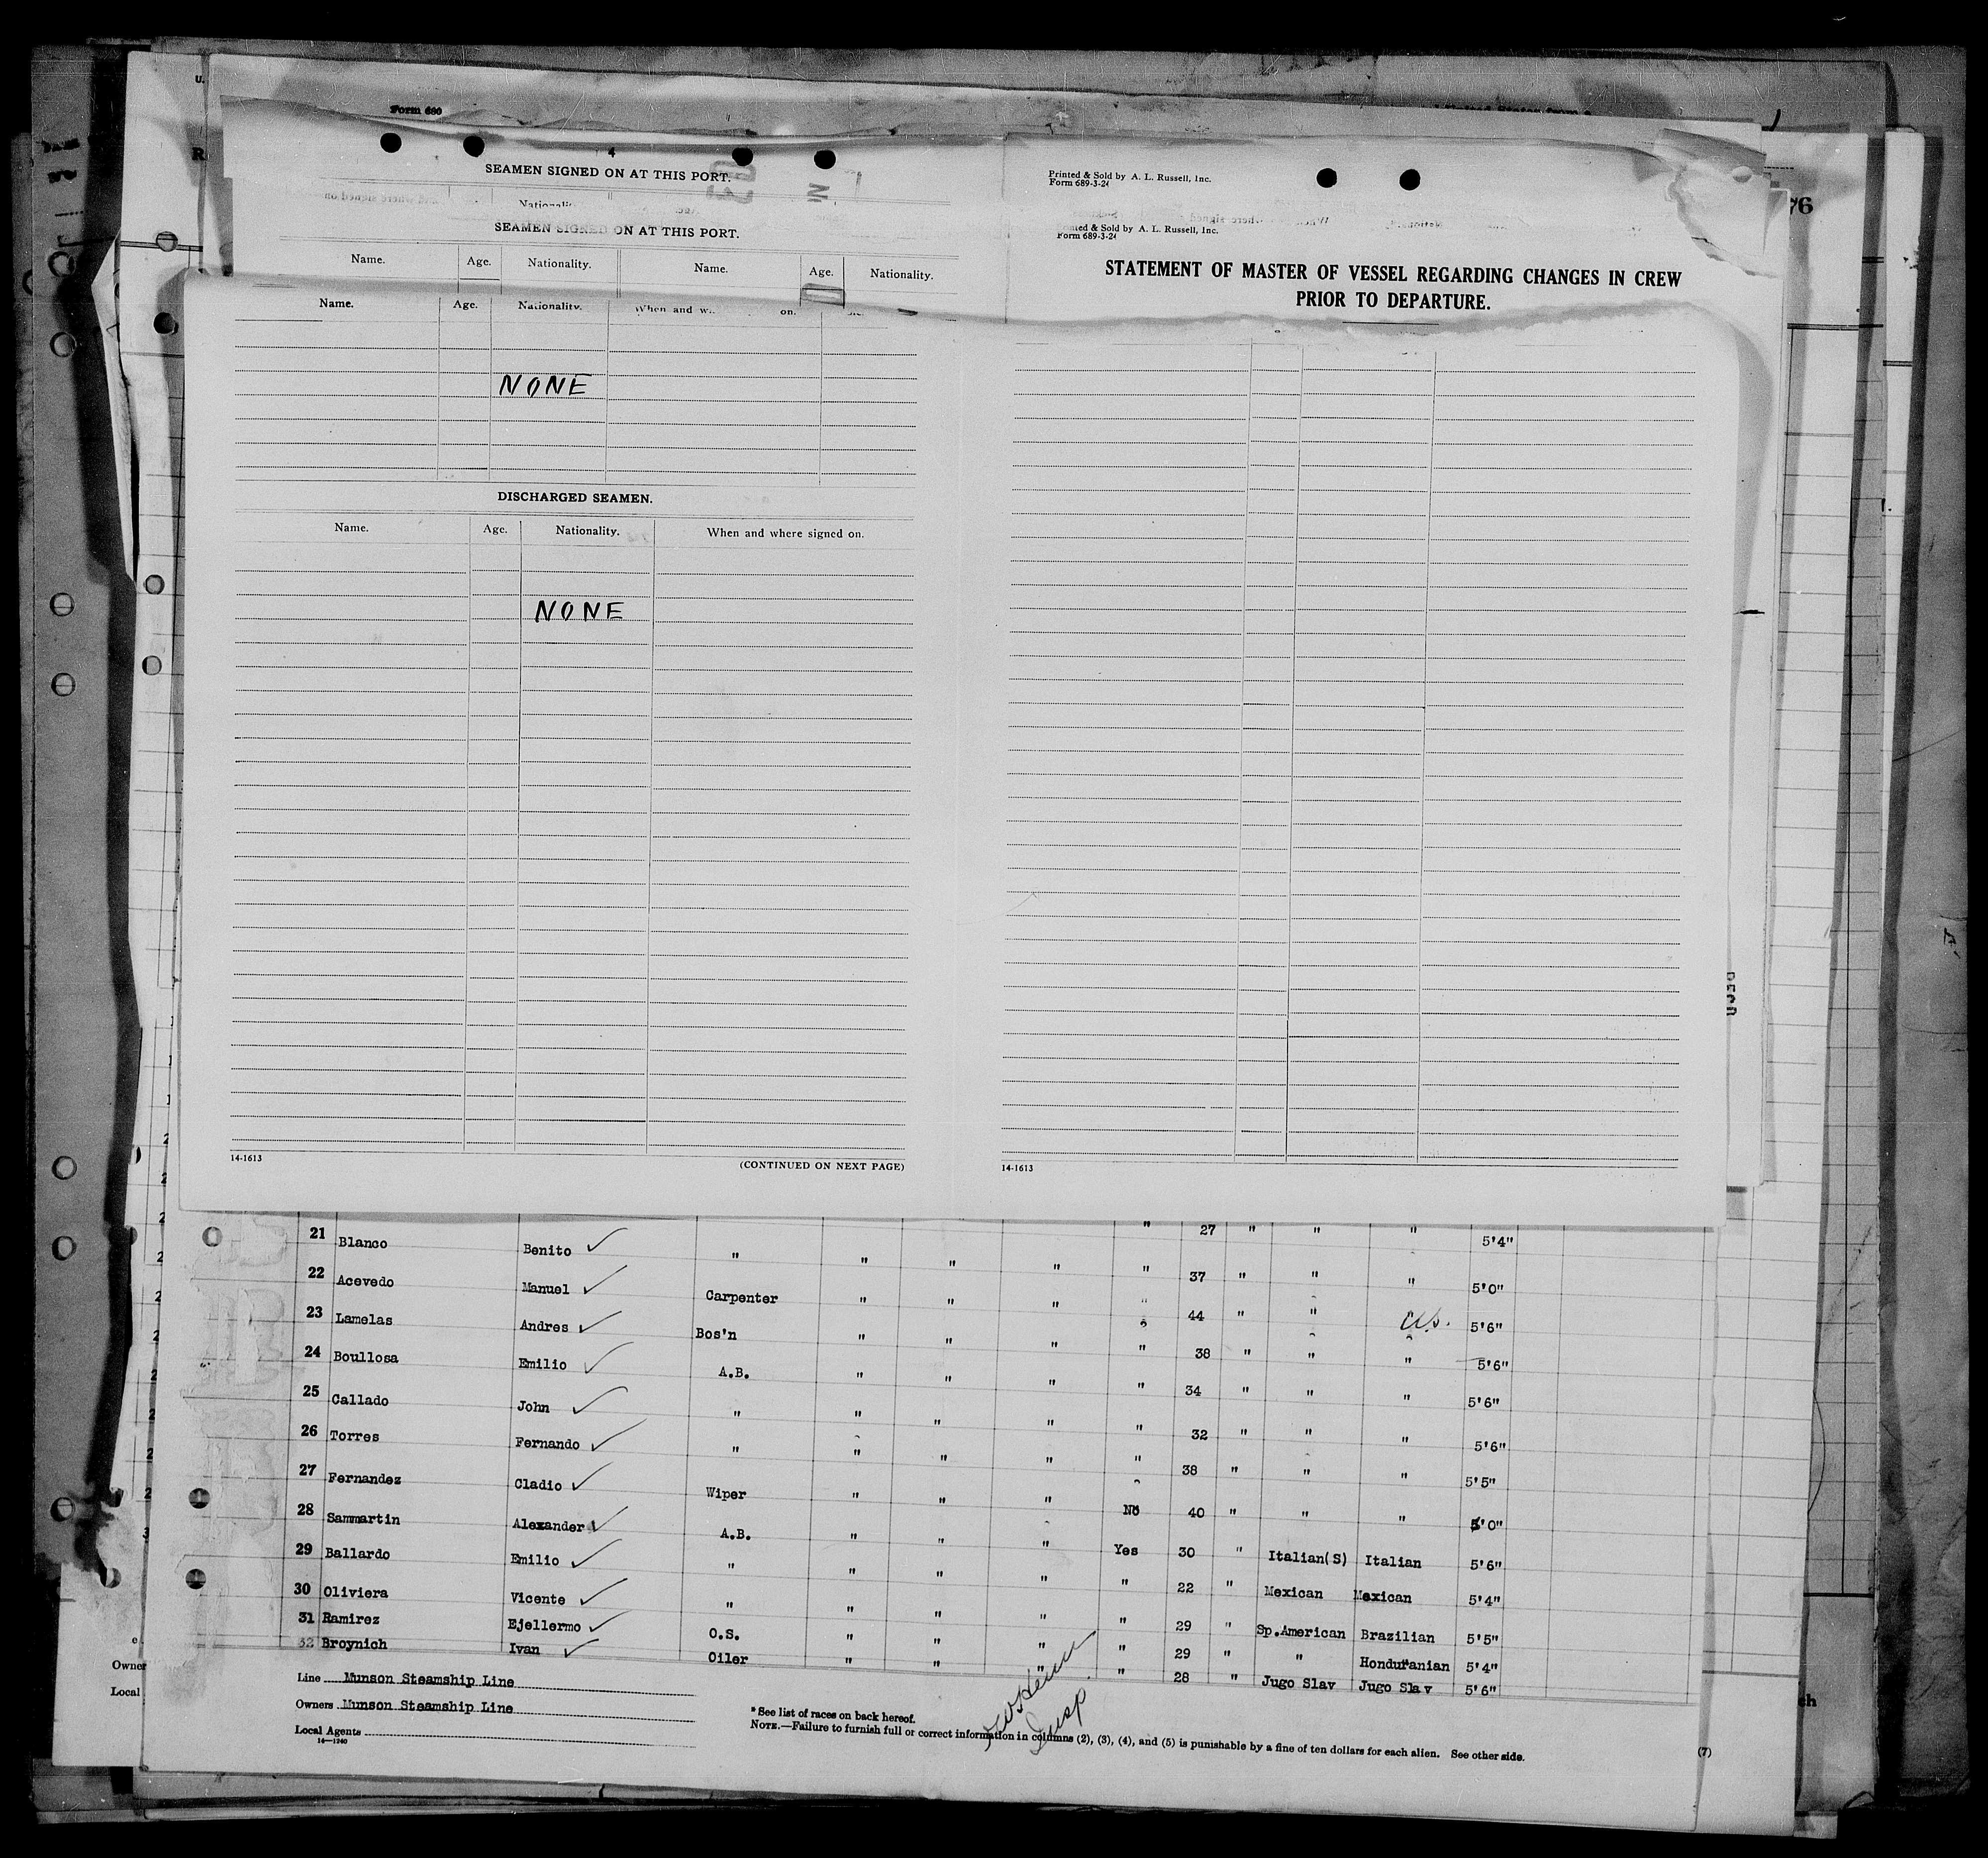 Form 680
4
SEAMEN SIGNED ON AT THIS PORT.
SEAMEN SIGNED ON AT THIS PORT.
Name. Age. Nationality. Name. Age. Nationality.
Printed & Sold by A. L. Russell, Inc.
Form 689-3-24
& Sold by A. L. Russell, Inc.
Form 689-3-24
STATEMENT OF MASTER OF VESSEL REGARDING CHANGES IN CREW
PRIOR TO DEPARTURE.
76
Name. Age. Nationality. When and on.
NONE
DISCHARGED SEAMEN.
Name. Age. Nationality. When and where signed on.
NONE
14-1613 (CONTINUED ON NEXT PAGE)
14-1613
" 27 " " " 5'4"
21 Blanco Benito ✓ " " " " " 37 " " " 5'0"
22 Acevedo Manuel ✓ Carpenter " " " " 44 " " " 5'6"
23 Lamelas Andres ✓ Bos'n " " " " 38 " " " 5'6"
24 Boullosa Emilio ✓ A.B. " " " " 34 " " " 5'6"
25 Callado John ✓ " " " " " 32 " " " 5'6"
26 Torres Fernando ✓ " " " " " 38 " " " 5'5"
27 Fernandez Cladio ✓ Wiper " " " No 40 " " " 5'0"
28 Sammartin Alexander ✓ A.B. " " " Yes 30 " Italian(S) Italian 5'6"
29 Ballardo Emilio ✓ " " " " " 22 " Mexican Mexican 5'4"
30 Oliviera Vicente ✓ " " " " " 29 " Sp.American Brazilian 5'5"
31 Ramirez Ejellermo ✓ O.S. " " " " 29 " " Honduranian 5'4"
32 Broynich Ivan ✓ Oiler " " " " 28 " Jugo Slav Jugo Slav 5'6"
Line Munson Steamship Line
Owners Munson Steamship Line
Local Agents
14-1240
* See list of races on back hereof.
NOTE.—Failure to furnish full or correct information in columns (2), (3), (4), and (5) is punishable by a fine of ten dollars for each alien. See other side.
(7)
Insp
Owner
Local